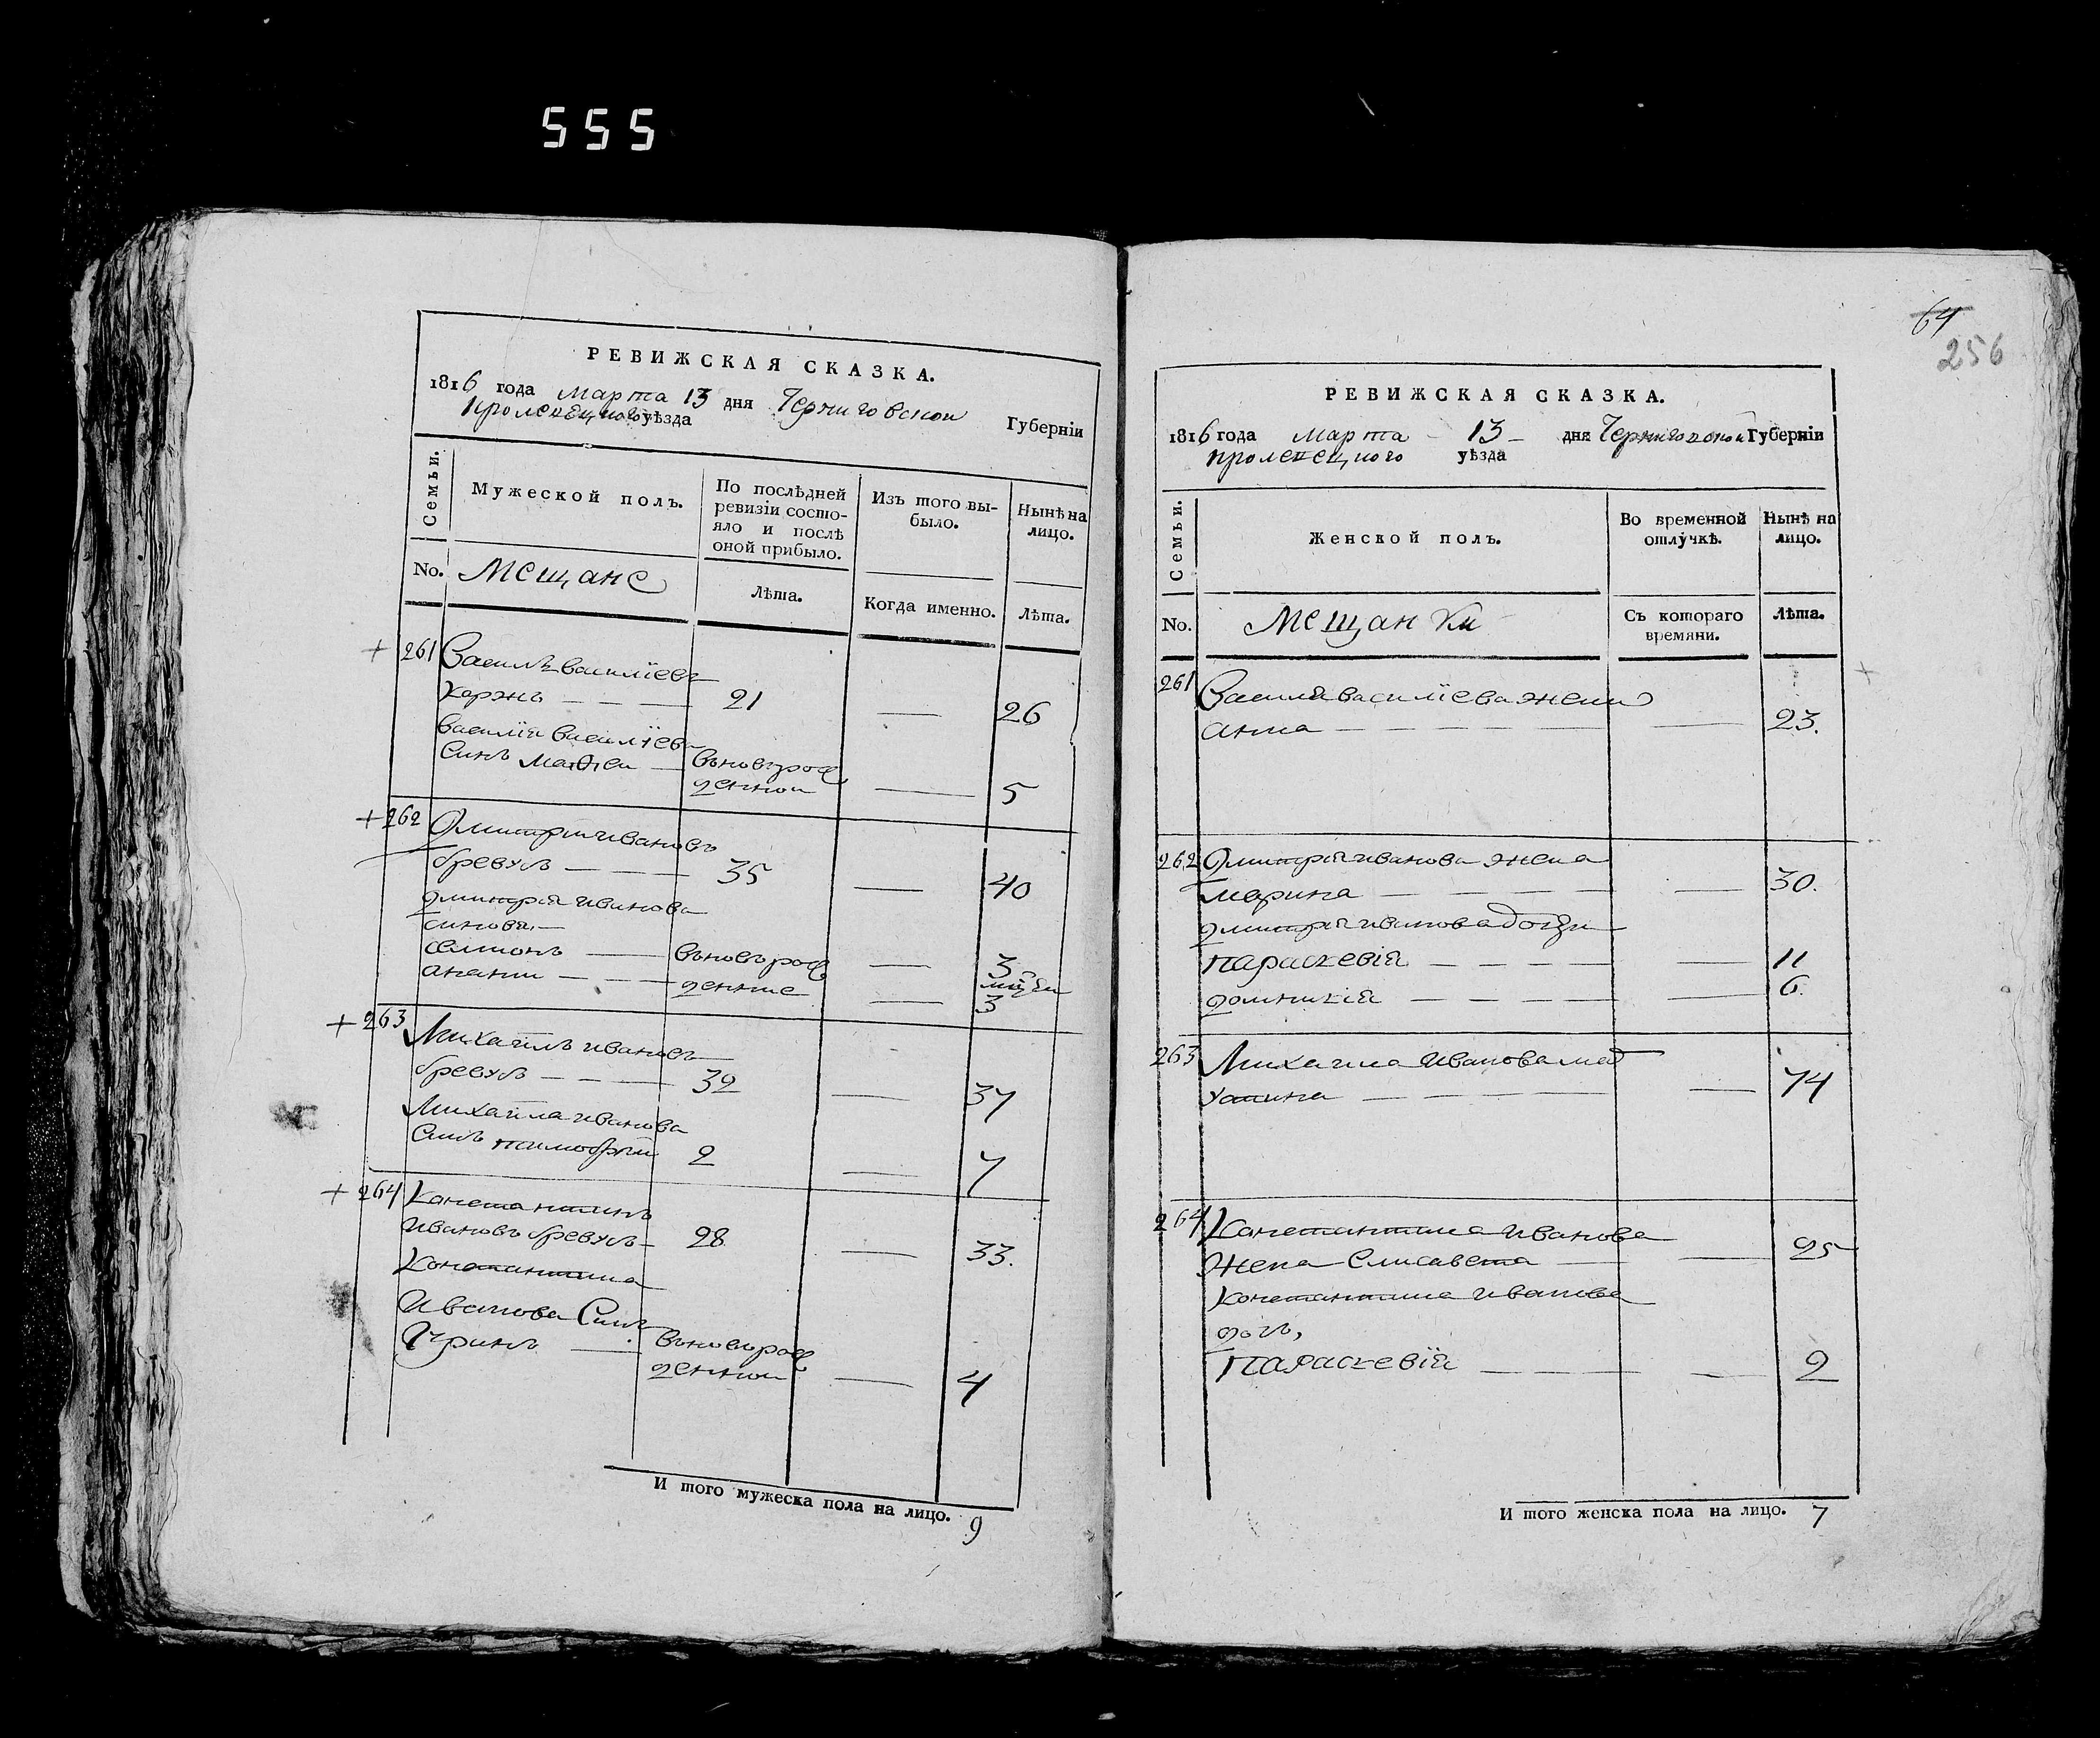 555
РЕВИЖСКАЯ СКАЗКА.
1816 года Марта 13 дня Черниговской Губерніи
кролевецкого уѣзда
Семьи.
Мужеской полъ.
По послѣдней ревизіи состояло и послѣ оной прибыло.
Изъ того выбыло.
Нынѣ на лицо.
No. Мещане
Лѣта.
Когда именно.
Лѣта.
261 Василь василіевъ
21 — 26
василія василіева
синъ матѳеи — вьновърож
денной — 5
262 Дмитрий ивановъ
бревул — — — 35 — 40
дмитрія иванова
синовя,—
симионъ — вьновърож — 3
анании — — денние — 3
263 Михаилъ ивановъ
бревул — — — 32 — 37
Михаила иванова
Синъ тимофей 2 — 7
264 Константинъ
Ивановъ бревул — 28 — 33.
Константина
Иванова Синъ
— вьновърож
денной — 4
И того мужеска пола на лицо. 9
64
256
РЕВИЖСКАЯ СКАЗКА.
1816 года Марта 13 дня Черниговской Губерніи
кролевецкого уѣзда
Семьи.
Женской полъ.
Во временной отлучкѣ.
Нынѣ на лицо.
No. Мещанки
Съ котораго времяни.
Лѣта.
261 Василя василіева жена
анна — — — — — 23.
262 Дмитрія иванова жена
марина — — — — 30.
дмитрія иванова дочери
параскевія — — — — 11
домникія — — — — 6.
263 Михаила Иванова мат
— — — — 74
264 Константина иванова
Жена Елисавета — — 25
Константина иванова
дочь,
Параскевія — — — 2
И того женска пола на лицо. 7